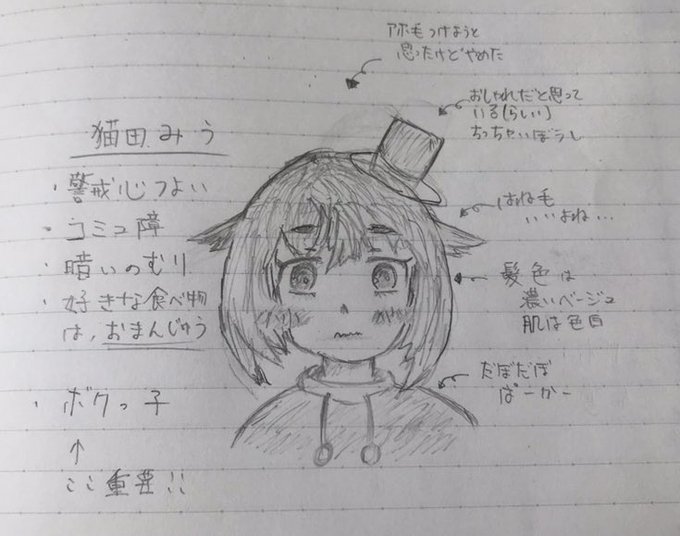 アホ毛つけようと
思ったけどやめた
おしゃれだと思って
いる(らしい)
ちっちゃいぼうし
猫田みう
・警戒心つよい
・コミュ障
・暗いのむり
・好きな食べ物
は、おまんじゅう
・ボクっ子
↑
ここ重要!!
はね毛
いいよね…
髪色は
濃いベージュ
肌は色白
だぼだぼ
ぱーかー